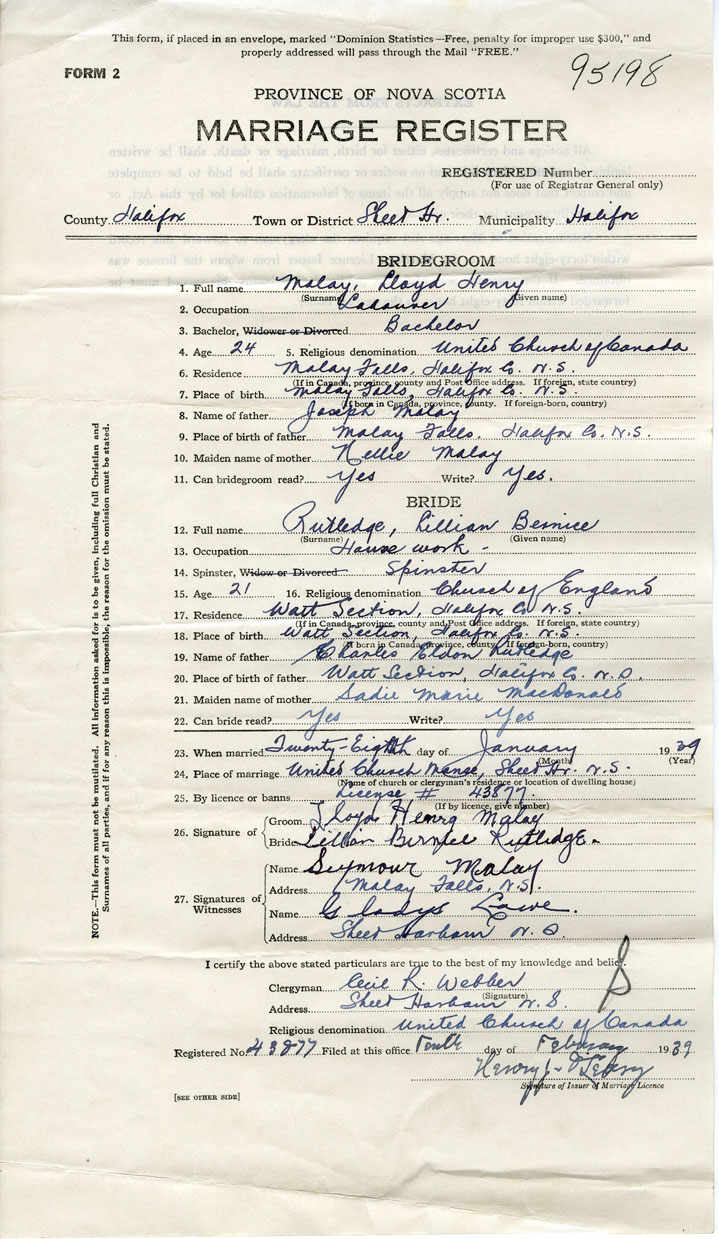 This form, if placed in an envelope, marked "Dominion Statistics—Free, penalty for improper use $300," and
properly addressed will pass through the Mail "FREE."
FORM 2
95198
PROVINCE OF NOVA SCOTIA
MARRIAGE REGISTER
REGISTERED Number
(For use of Registrar General only)
County Halifax Town or District Sheet Hr. Municipality Halifax
BRIDEGROOM
1. Full name Malay, Lloyd Henry
(Surname) (Given name)
2. Occupation Labourer
3. Bachelor, Widower or Divorced Bachelor
4. Age 24 5. Religious denomination United Church of Canada
6. Residence Malay Falls, Halifax Co. N.S.
(If in Canada, province, county and Post Office address. If foreign, state country)
7. Place of birth Malay Falls, Halifax Co. N.S.
(If born in Canada, province, county. If foreign-born, country)
8. Name of father Joseph Malay
9. Place of birth of father Malay Falls. Halifax Co. N.S.
10. Maiden name of mother Nellie Malay
11. Can bridegroom read? Yes Write? Yes.
BRIDE
12. Full name Rutledge, Lillian Bernice
(Surname) (Given name)
13. Occupation House work -
14. Spinster, Widow or Divorced Spinster
15. Age 21 16. Religious denomination Church of England
17. Residence Watt Section, Halifax Co N.S.
(If in Canada, province, county and Post Office address. If foreign, state country)
18. Place of birth Watt Section, Halifax Co. N.S.
(If born in Canada, province, county. If foreign-born, country)
19. Name of father Charles Eldon Rutledge
20. Place of birth of father Watt Section, Halifax Co. N.S.
21. Maiden name of mother Sadie Marie MacDonald
22. Can bride read? Yes Write? Yes
23. When married Twenty-Eighth day of January 1939
(Month) (Year)
24. Place of marriage United Church Manse, Sheet Hr. N.S.
(Name of church or clergyman's residence or location of dwelling house)
25. By licence or banns License # 43877
(If by licence, give number)
26. Signature of
Groom Lloyd Henry Malay
Bride Lillian Rutledge.
27. Signatures of Witnesses
Name Seymour Malay
Address Malay Falls, N.S.
Name Gladys Lowe.
Address Sheet Harbour N.S.
I certify the above stated particulars are true to the best of my knowledge and belief.
Clergyman Cecil R. Webber
(Signature)
Address Sheet Harbour N.S.
Religious denomination United Church of Canada
Registered No. 43877 Filed at this office Tenth day of February 1939
Henry J.
Signature of Issuer of Marriage Licence
[SEE OTHER SIDE]
NOTE.—This form must not be mutilated. All information asked for is to be given, including full Christian and
Surnames of all parties, and if for any reason this is impossible, the reason for the omission must be stated.